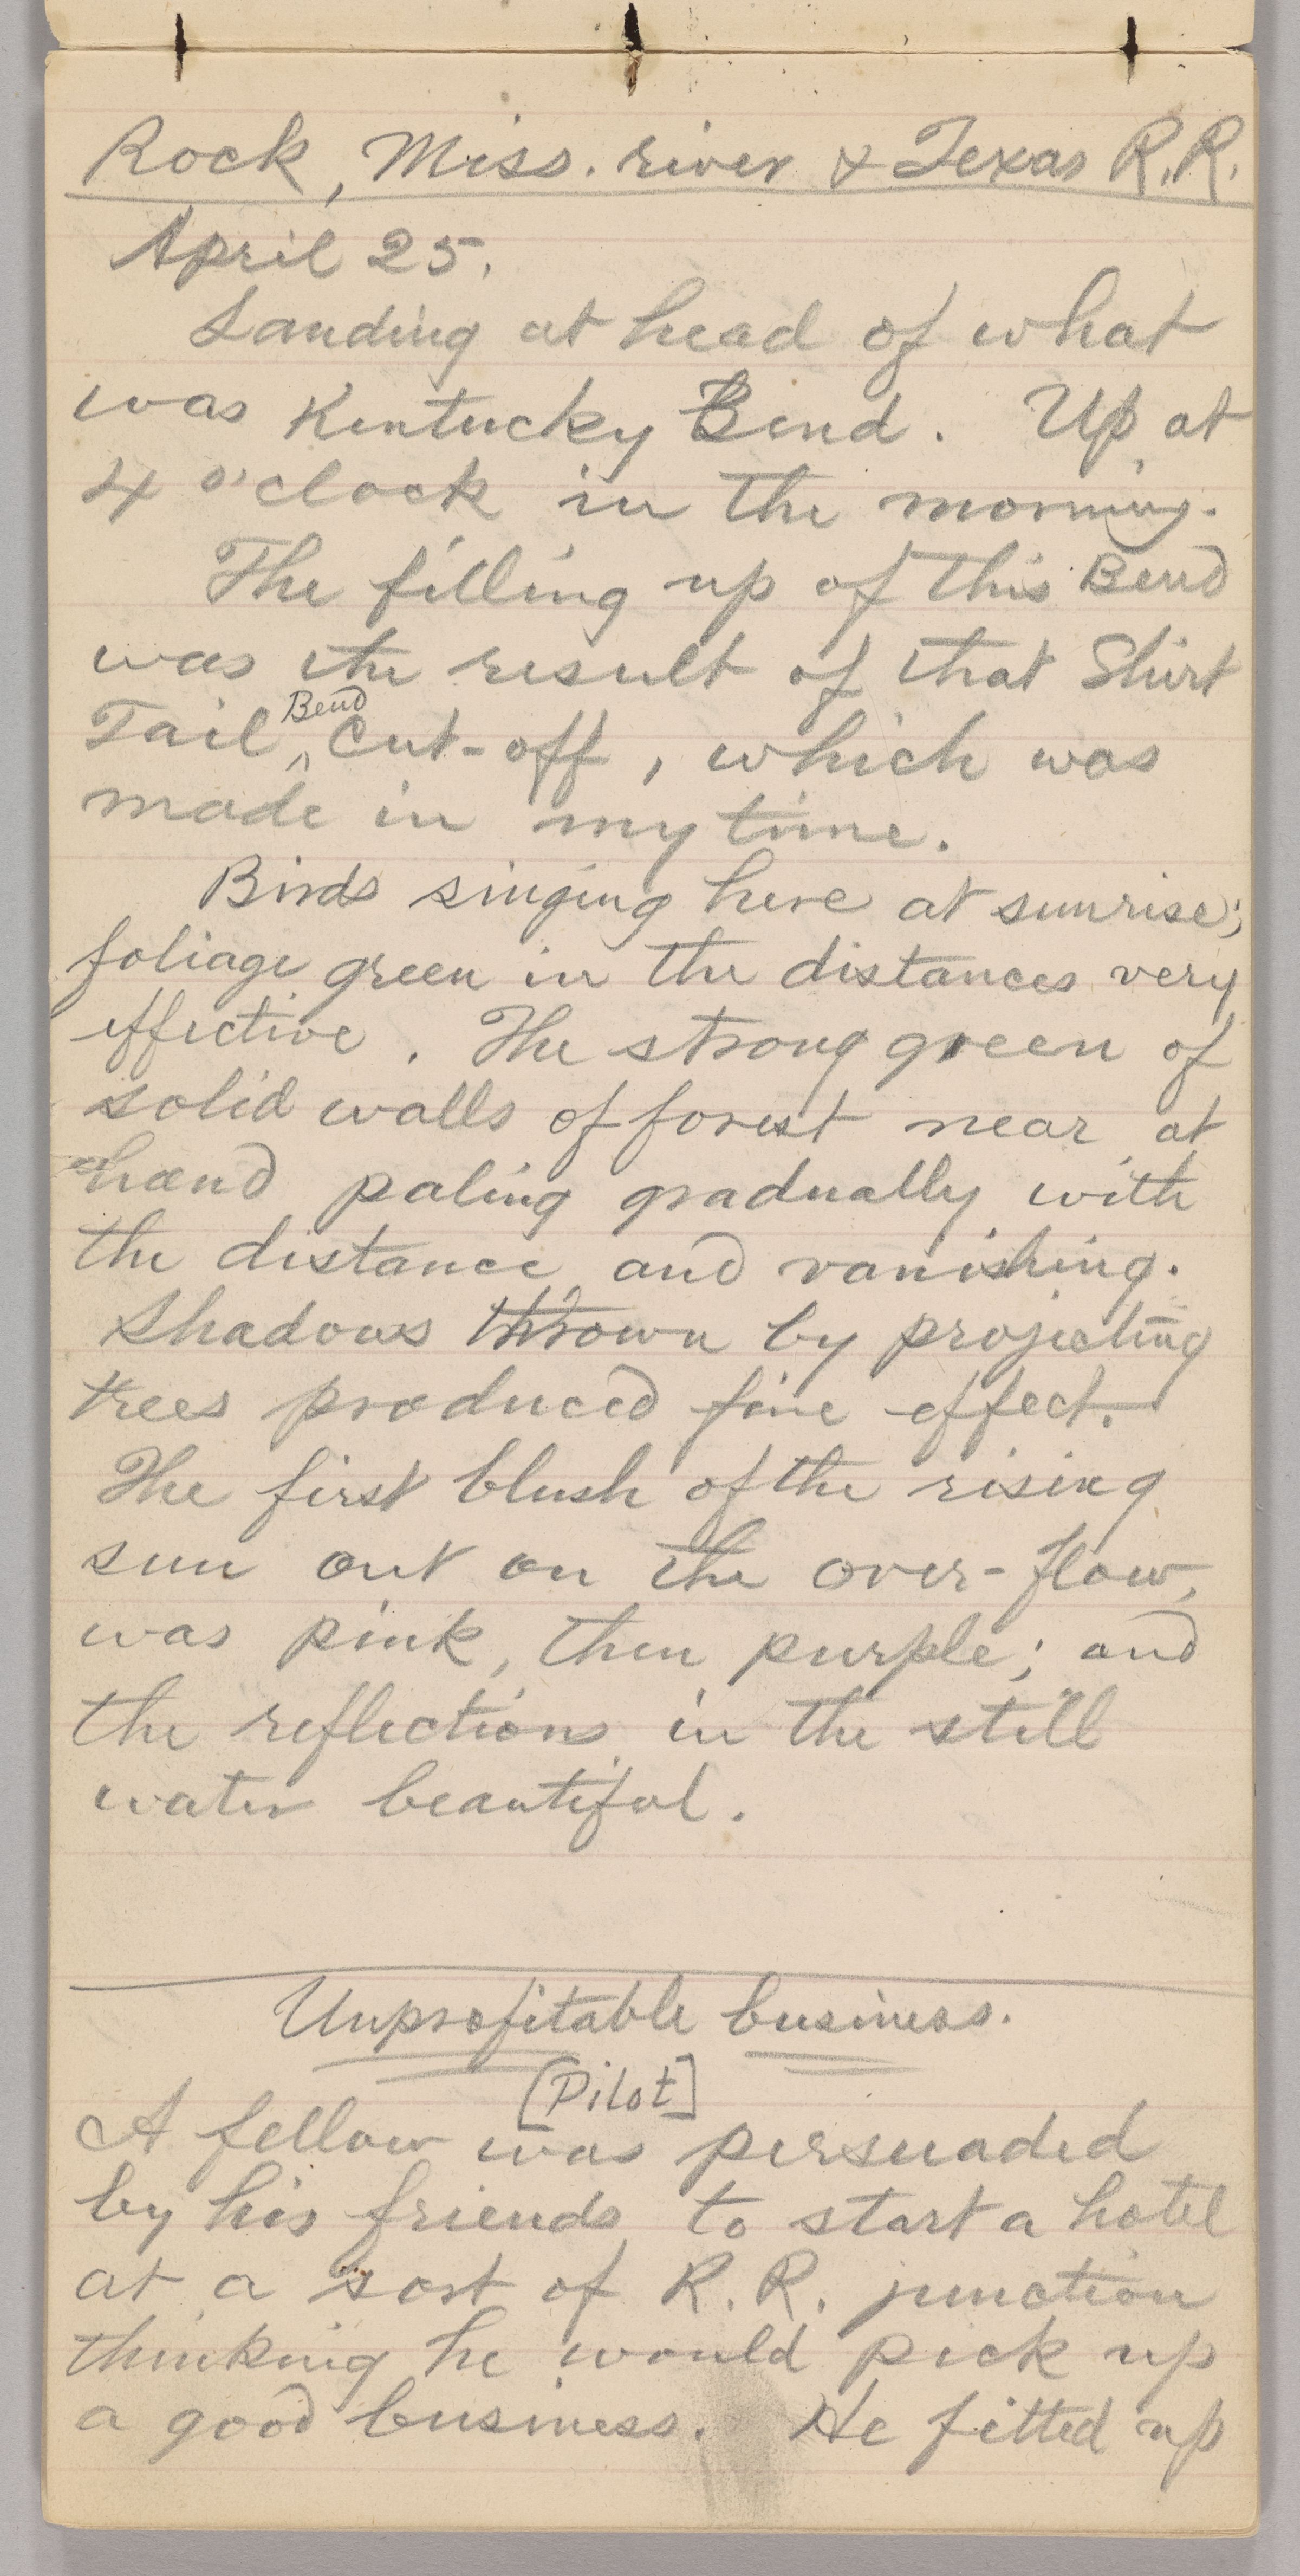 Rock, Miss. river & Texas R.R.
April 25.
Landing at head of what
was Kentucky Bend. Up at
4 o'clock in the morning.
The filling up of this Bend
was the result of that Shirt
Tail Bend cut-off, which was
made in my time.
Birds singing here at sunrise;
foliage green in the distances very
effective. The strong green of
solid walls of forest near at
hand paling gradually with
the distance and vanishing.
Shadows thrown by projecting
trees produced fine effect.
The first blush of the rising
sun out on the over-flow,
was pink, then purple; and
the reflections in the still
water beautiful.
Unprofitable business.
[Pilot]
A fellow was persuaded
by his friends to start a hotel
at a sort of R.R. junction
thinking he would pick up
a good business. He fitted up